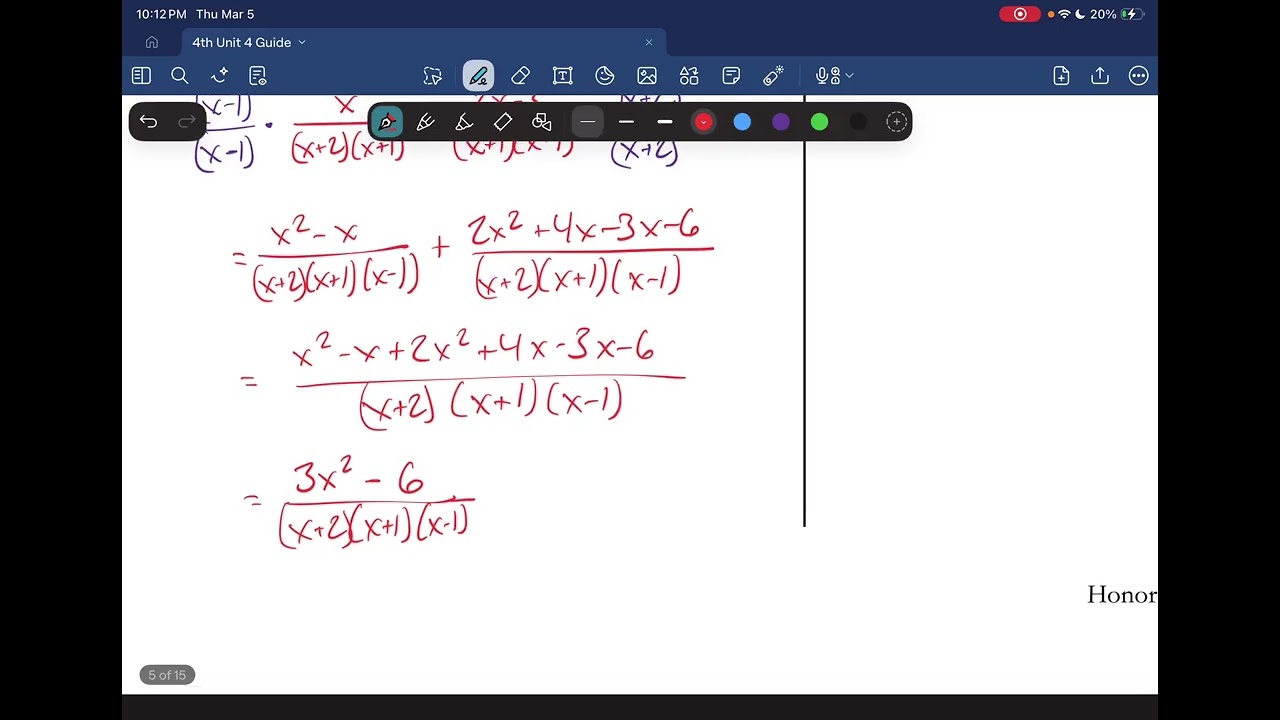 10:12 PM Thu Mar 5 20%
4th Unit 4 Guide
(x-1) x
(x-1) · (x+2)(x+1) (x+2)
= x² - x / (x+2)(x+1)(x-1) + 2x² + 4x - 3x - 6 / (x+2)(x+1)(x-1)
= x² - x + 2x² + 4x - 3x - 6 / (x+2)(x+1)(x-1)
= 3x² - 6 / (x+2)(x+1)(x-1)
Honor
5 of 15